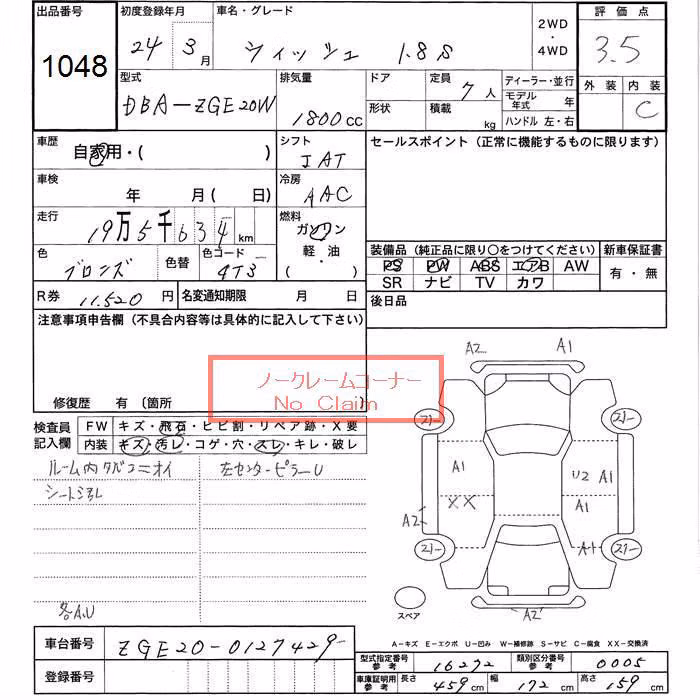 出品番号 初度登録年月 車名・グレード 2WD ・ 4WD 評価点
1048 24 3月 ウィッシュ 1.8S 3.5
外装 内装 C
型式 排気量 ドア 定員 7人 ディーラー・並行
形状 積載 kg モデル年式 年
DBA-ZGE20W 1800cc ハンドル 左・右
車歴 自家用・( ) シフト IAT セールスポイント (正常に機能するものに限ります)
車検 年 月( 日) 冷房 AAC
走行 19万5千634km 燃料 ガソリン
軽・油
( ・ )
色 ブロンズ 色替 色コード 4T3
装備品 (純正品に限り○をつけてください) 新車保証書
PS PW ABS エアB AW 有・無
SR ナビ TV カワ
R券 11.520円 名変通知期限 月 日 後日品
注意事項申告欄 (不具合内容等は具体的に記入して下さい)
ノークレームコーナー
No Claim
修復歴 有 (箇所 )
検査員記入欄 FW キズ・飛石・ヒビ割・リペア跡・X要
内装 キズ・汚レ・コゲ・穴・スレ・キレ・破レ
ルーム内タバコニオイ 左センターピラーU
シート汚レ
各A.U
A2 A1
21- 21-
A1 U2 A1
XX A1
A2 A1
21- 21-
スペア A2
A-キズ E-エクボ U-凹み W-補修跡 S-サビ C-腐食 XX-交換済
車台番号 ZGE20-0127429-
登録番号
型式指定番号参考 16272 類別区分番号参考 0005
車庫証明用参考 長さ 459cm 幅 172cm 高さ 159cm